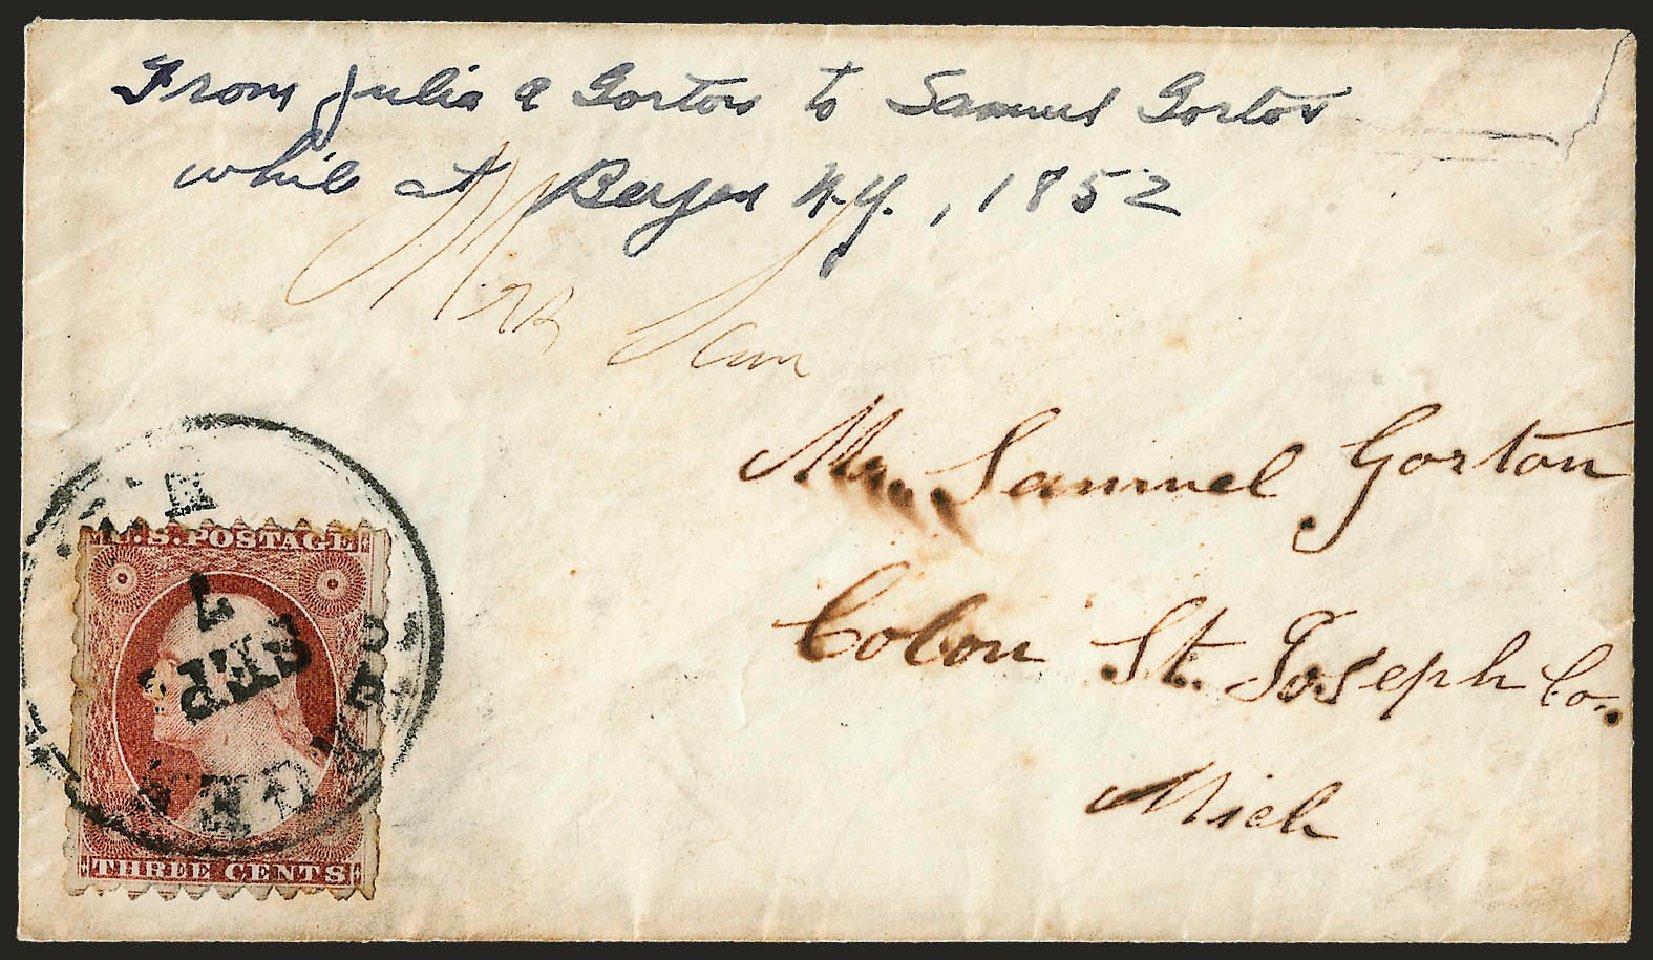 From Julia A Gorton to Samuel Gorton
while at Bergen N.Y., 1852
Mr Sam
Mr. Samuel Gorton
Colon St. Joseph Co.
Mich
U.S. POSTAGE
7
SEP
THREE CENTS